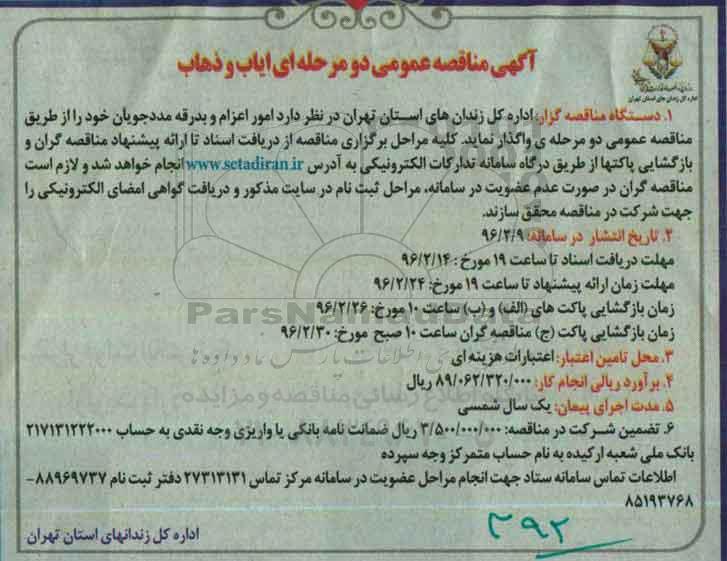 اداره کل زندان های استان تهران
آگهی مناقصه عمومی دو مرحله ای ایاب و ذهاب
۱. دستگاه مناقصه گزار: اداره کل زندان های استان تهران در نظر دارد امور اعزام و بدرقه مددجویان خود را از طریق
مناقصه عمومی دو مرحله ی واگذار نماید. کلیه مراحل برگزاری مناقصه از دریافت اسناد تا ارائه پیشنهاد مناقصه گران و
بازگشایی پاکتها از طریق درگاه سامانه تدارکات الکترونیکی به آدرس www.setadiran.ir انجام خواهد شد و لازم است
مناقصه گران در صورت عدم عضویت در سامانه، مراحل ثبت نام در سایت مذکور و دریافت گواهی امضای الکترونیکی را
جهت شرکت در مناقصه محقق سازند.
۲. تاریخ انتشار در سامانه: ۹۶/۲/۹
مهلت دریافت اسناد تا ساعت ۱۹ مورخ : ۹۶/۲/۱۴
مهلت زمان ارائه پیشنهاد تا ساعت ۱۹ مورخ: ۹۶/۲/۲۴
زمان بازگشایی پاکت های (الف) و (ب) ساعت ۱۰ مورخ: ۹۶/۲/۲۶
زمان بازگشایی پاکت (ج) مناقصه گران ساعت ۱۰ صبح مورخ: ۹۶/۲/۳۰
۳. محل تامین اعتبار: اعتبارات هزینه ای
۴. برآورد ریالی انجام کار: ۸۹/۰۶۲/۳۲۰/۰۰۰ ریال
۵. مدت اجرای پیمان: یک سال شمسی
۶. تضمین شرکت در مناقصه: ۳/۵۰۰/۰۰۰/۰۰۰ ریال ضمانت نامه بانکی یا واریزی وجه نقدی به حساب ۲۱۷۱۳۱۲۲۲۰۰۰
بانک ملی شعبه ارکیده به نام حساب متمرکز وجه سپرده
اطلاعات تماس سامانه ستاد جهت انجام مراحل عضویت در سامانه مرکز تماس ۲۷۳۱۳۱۳۱ دفتر ثبت نام ۸۸۹۶۹۷۳۷-
۸۵۱۹۳۷۶۸
۳۹۲
اداره کل زندانهای استان تهران